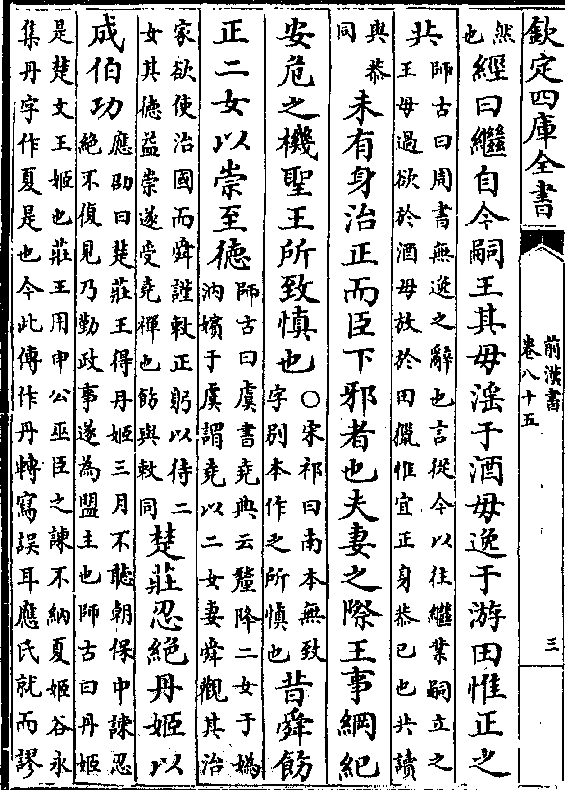 欽定四庫全書
前漢書
卷八十五
三
然
也
經曰繼自今嗣王其毋淫于酒毋逸于游田惟正之
共
師古曰周書無逸之辭也言從今以往繼業嗣立之
王毋過欲於酒毋放於田獵惟宜正身恭己也共讀
與恭
同
未有身治正而臣下邪者也夫妻之際王事綱紀
安危之機聖王所致慎也
○宋祁曰南本無致
字别本作之所慎也
昔舜飭
正二女以崇至德
師古曰虞書堯典云釐降二女于媯
汭嬪于虞謂堯以二女妻舜觀其治
家欲使治國而舜謹敕正躬以待二
女其德益崇遂受堯禪也飭與敕同
楚莊忍絕丹姬以
成伯功
應劭曰楚莊王得丹姬三月不聽朝保申諫忍
絕不復見乃勤政事遂為盟主也師古曰丹姬
是楚文王姬也莊王用申公巫臣之諫不納夏姬谷永
集丹字作夏是也今此傳作丹轉寫誤耳應氏就而謬